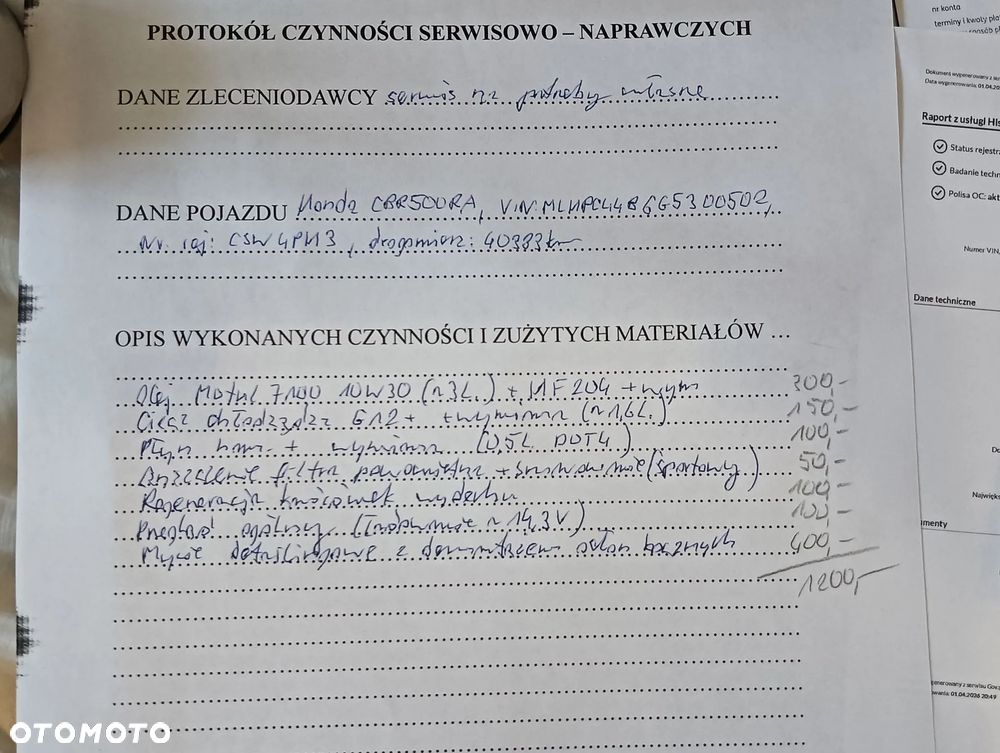 PROTOKÓŁ CZYNNOŚCI SERWISOWO – NAPRAWCZYCH
DANE ZLECENIODAWCY serwis na potrzeby własne
DANE POJAZDU Honda CBR500RA, VIN: MLHPC44B6G5300502,
Nr. rej: CSW4PM3, drogomierz: 40383km
OPIS WYKONANYCH CZYNNOŚCI I ZUŻYTYCH MATERIAŁÓW ...
Olej Motul 7100 10W30 (~3L.) + HF204 + wym 300,-
Ciecz chłodząca G12+ + wymiana (~1,6L.) 150,-
Płyn ham. + wymiana (0,5L DOT4) 100,-
filtra powietrza + (sportowy) 50,-
Regeneracja końcówek wydechu 100,-
Przegląd ogólny (ładowanie ~14,3V) 100,-
Mycie detailingowe z demontażem osłon bocznych 400,-
1200,-
nr konta
terminy i kwoty
Dokument wygenerowany z
Data wygenerowania: 01.04.20
Raport z usługi
Status rejestr
Badanie techn
Polisa OC: akt
Numer VIN,
Dane techniczne
Do
Najwięks
menty
enerowany z serwisu
wania: 01.04.2026 20:49
OTOMOTO